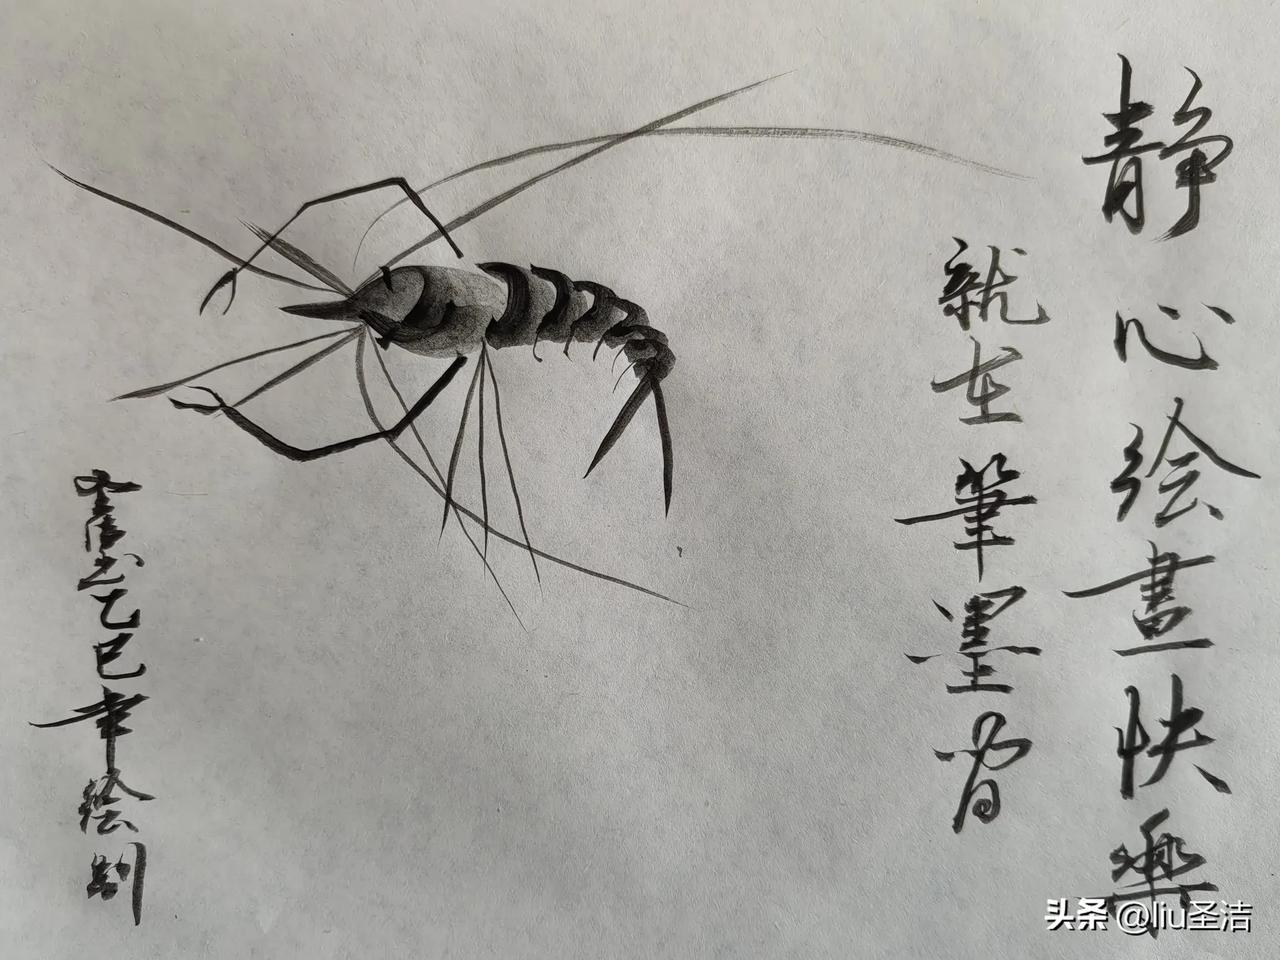 静心绘畫快樂
就在筆墨間
乙巳年绘
头条 @liu圣洁